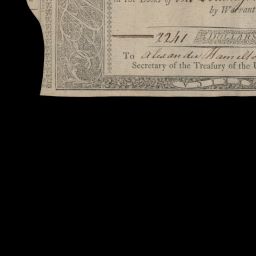 in the Books of the
by Warrant
2241 DOLLARS
To Alexander Hamilto
Secretary of the Treasury of the U